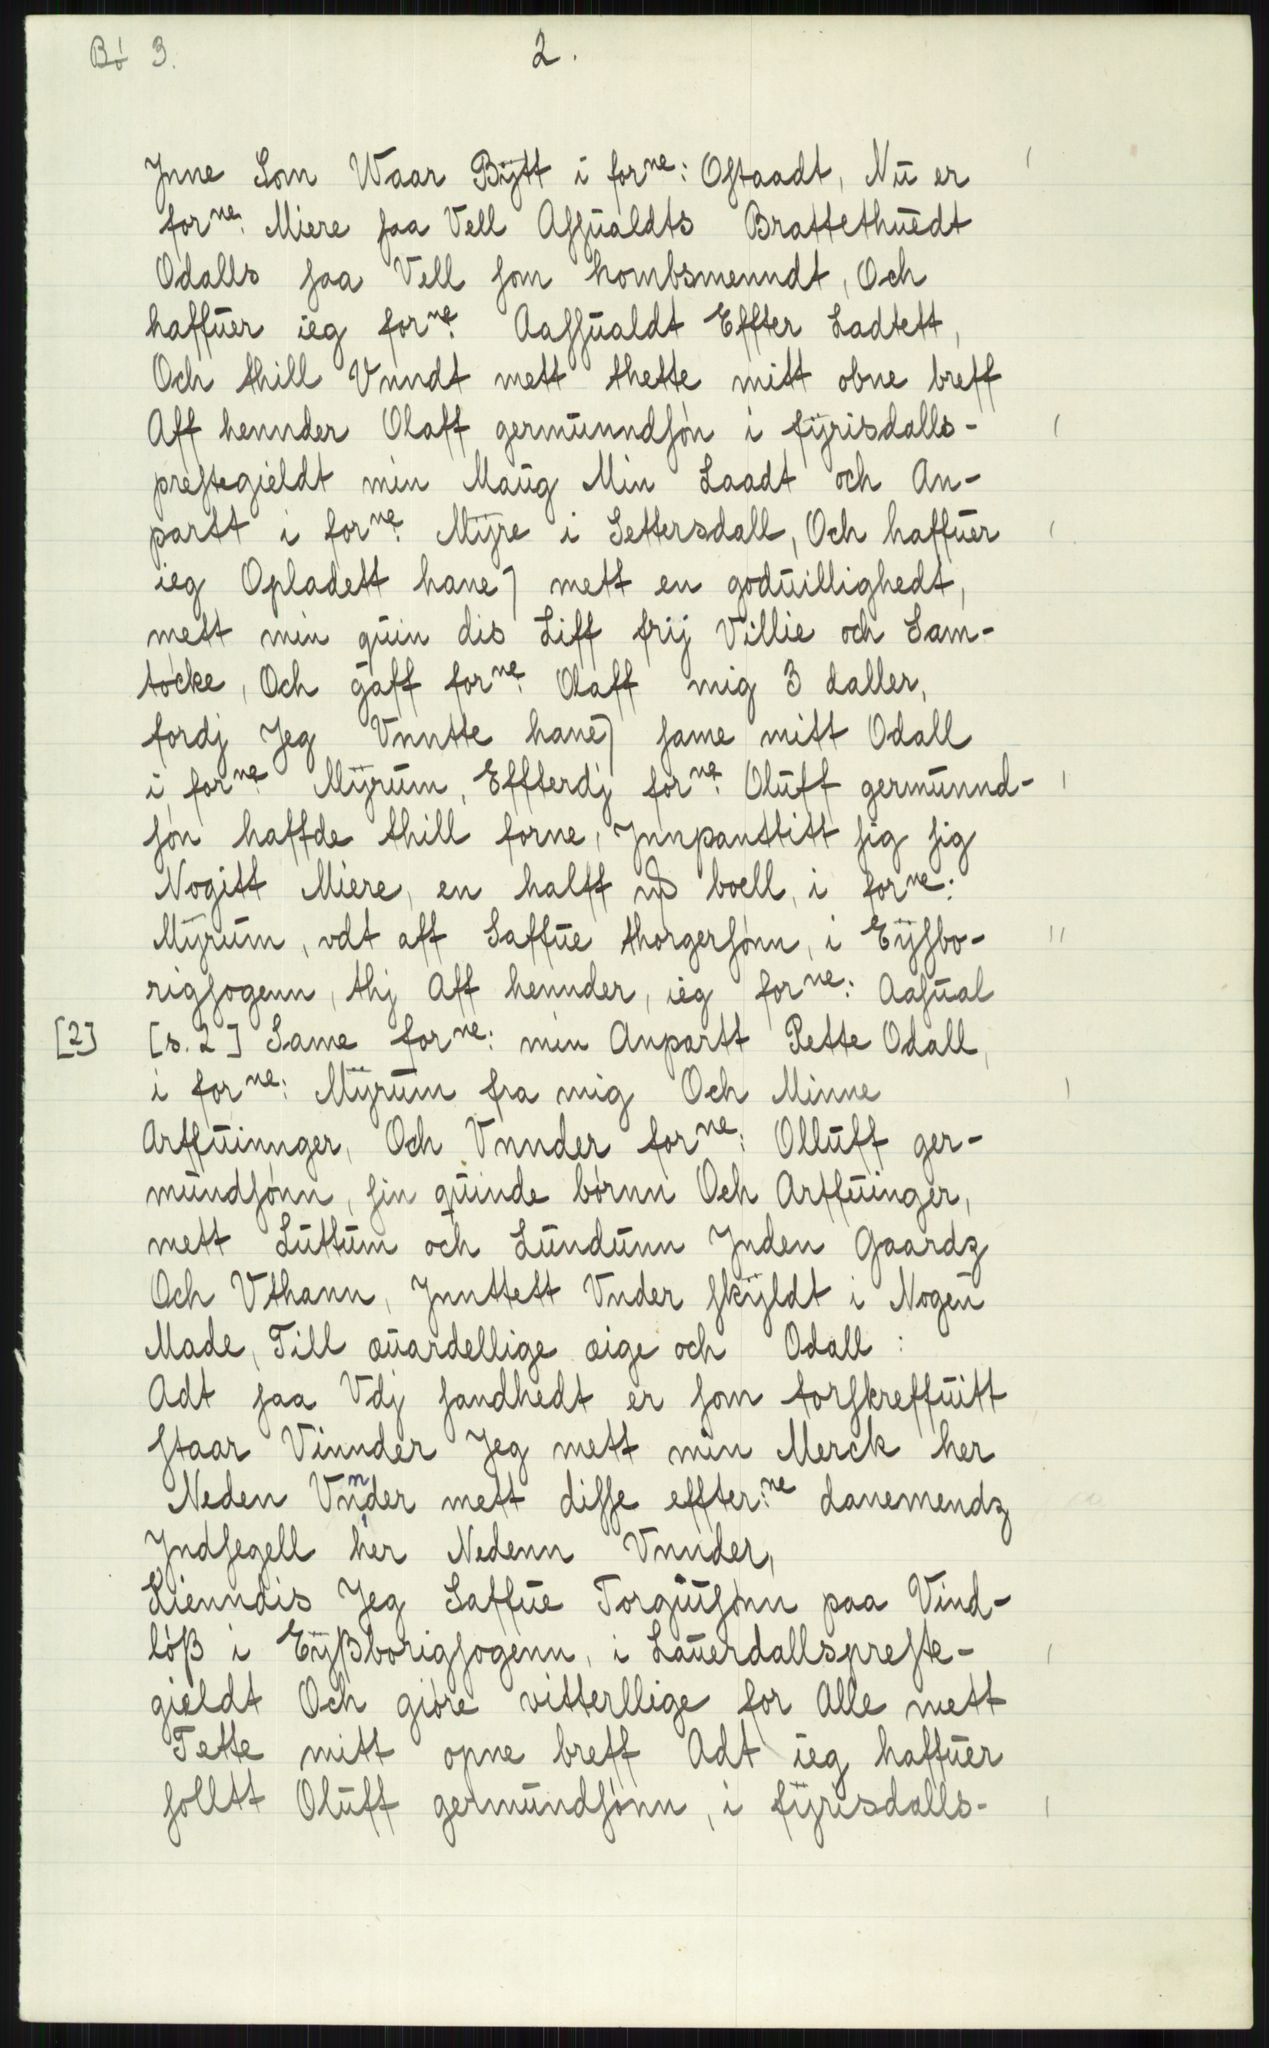 Bö 3.
2.
Jnne Som Waar Bÿtt i forne: Ostaadt, Nu er
forne: Miere saa Vell Assualdts Brattethuedt
Odalls saa Vell som hombsmenndt, Och
haffuer ieg forne: Aassualdt Effter Ladtett,
Och thill Vnndt mett thette mitt obne breff
Aff hennder Olaff germunndsón i fÿrisdalls-
prestegieldt min Maug Min Laadt och An-
partt i forne: Mÿre i Settersdall, Och haffuer
ieg Opladett hane) mett en goduillighedt,
mett min quin dis Liff frij Villie och Sam-
tócke, Och gaff forne: Olaff mig 3 daller,
fordj Jeg Vnntte hane) same mitt Odall
i forne Mÿrum, Effterdj forne: Oluff germunnd-
són haffde thill forne, Jnnpanttitt sig sig
Nogitt Miere, en halff boell, i forne:
Mÿrum, vdt aff Saffue thorgersónn, i Eÿsbo-
rigsogenn, thj Aff hennder, ieg forne: Aasual
[2] [s. 2] Same forne: min Anpartt Rette Odall,
i forne: Mÿrum fra mig Och Minne
Arffuinnger, Och Vnnder forne: Olluff ger-
mundsónn, sin quinde bórnn Och Arffuinger,
mett Luttum och Lundunn Jnden Gaardz
Och Vthann, Jnnttett Vnder skÿldt i Nogen
Made, Till æuardellige æige och Odall:
Adt saa Vdj sandhedt er som forskreffuitt
staar Vinnder Jeg mett min Merck her
Neden Vnnder mett disse effter:ne danemendz
Jndsegell her Nedenn Vnnder,
Kienndis Jeg Saffue Torguusónn paa Vind-
lóß i Eÿßborigsogenn, i Lauerdallspreste-
gieldt Och gióre vitterllige for Alle mett
Tette mitt opne breff Adt ieg haffuer
solltt Oluff germundsónn, i fÿrisdalls-